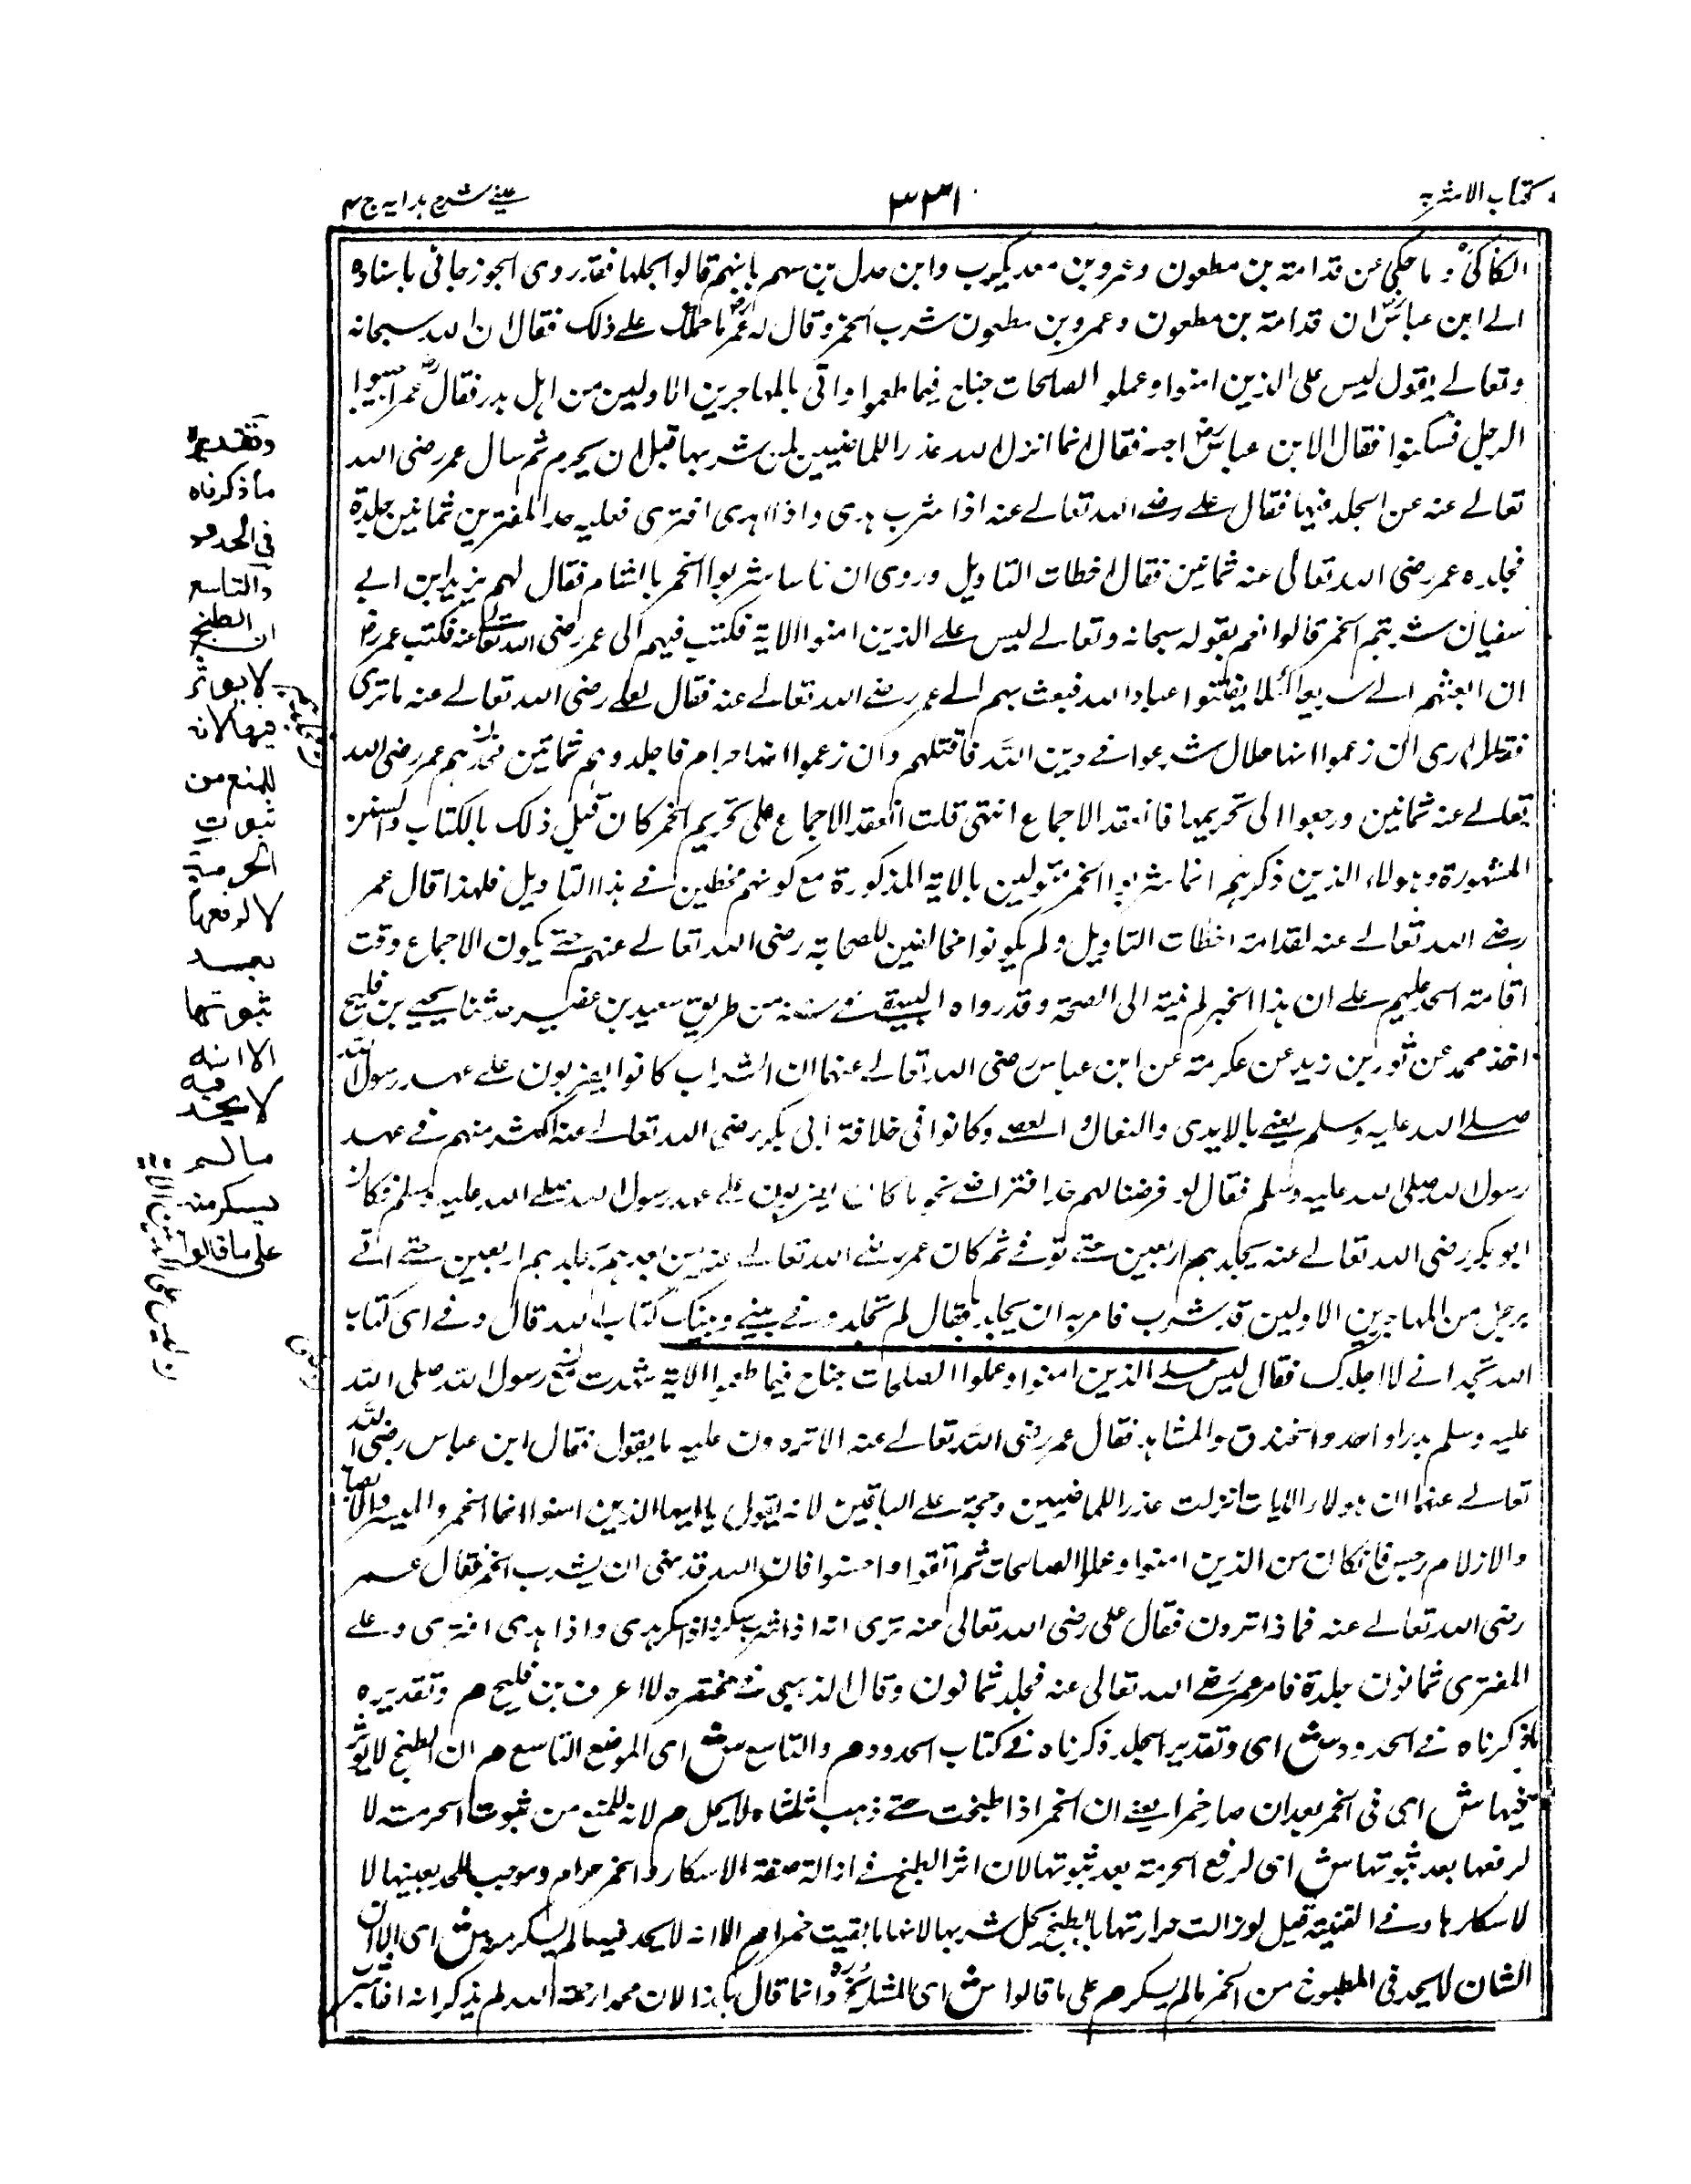 كتاب الاشربة
٣٣١
عينى شرح هدايه ج ٤
الكاكى وما حكى عن قدامة بن مطعون وعمرو بن معديكرب وابن عدل بن سهم بانهم قالوا بحلها فقد روى الجوزجانى باسناده
الى ابن عباس ان قدامة بن مطعون وعمرو بن مطعون شرب الخمر وقال له عمر ما حملك على ذلك فقال ان الله سبحانه
وتعالى يقول ليس على الذين امنوا وعملوا الصالحات جناح فيما طعموا وانى بالمهاجرين الاولين من اهل بدر فقال عمر اجيبوا
الرجل فسكتوا فقال لابن عباس اجبه فقال انما انزل الله عذر اللماضيين لمن شربها قبل ان يحرم ثم سال عمر رضى الله
تعالى عنه عن الجلد فيها فقال على رضى الله تعالى عنه اذا شرب هدى واذا اهدى افترى فعليه حد المفترين ثمانين جلدة
فجلده عمر رضى الله تعالى عنه ثمانين فقال اخطات التاويل وروى ان ناسا شربوا الخمر بالشام فقال لهم يزيد ابن ابى
سفيان شربتم الخمر قالوا نعم بقوله سبحانه وتعالى ليس على الذين امنوا الاية فكتب فيهم الى عمر رضى الله تعالى عنه فكتب عمر رض
ان ابعثهم الى سريعا لئلا يفتنوا عباد الله فبعث بهم الى عمر رضى الله تعالى عنه فقال لعلى رضى الله تعالى عنه ما ترى
فقال ارى ان زعموا انها حلال شرعوا فى دين الله فاقتلهم وان زعموا انها حرام فاجلدوهم ثمانين فحدهم عمر رضى الله
تعالى عنه ثمانين ورجعوا الى تحريمها فانعقد الاجماع انتهى قلت انعقد الاجماع على تحريم الخمر كان قبل ذلك بالكتاب والسنة
المشهورة وهولاء الذين ذكرهم انما شربوا الخمر متولين بالاية المذكورة مع كونهم مخطين فى هذا التاويل فلهذا قال عمر
رضى الله تعالى عنه لقدامة اخطات التاويل ولم يكونوا مخالفين للصحابة رضى الله تعالى عنهم حتى يكون الاجماع وقت
اقامة الحد عليهم على ان هذا الخبر لم ينته الى الصحة وقد رواه البيهقى فى سننه من طريق سعيد بن عفير حدثنا يحيى بن فليح
اخذ محمد عن ثور بن زيد عن عكرمة عن ابن عباس رضى الله تعالى عنهما ان الشراب كانوا يضربون على عهد رسول الله
صلى الله عليه وسلم يعنى بالايدى والنعال والعصى وكانوا فى خلافة ابى بكر رضى الله تعالى عنه اكثر منهم فى عهد
رسول الله صلى الله عليه وسلم فقال لو فرضنا لهم حدا فتراضى نحو ما كانوا يضربون على عهد رسول الله صلى الله عليه وسلم فكان
ابو بكر رضى الله تعالى عنه يجلدهم اربعين حتى توفى ثم كان عمر رضى الله تعالى عنه من بعدهم يجلدهم اربعين حتى اتى
برجل من المهاجرين الاولين قد شرب فامر به ان يجلد فقال لم تجلدونى بينى وبينك كتاب الله قال وفى اى كتاب
الله تجد انى لا اجلدك فقال ليس على الذين امنوا وعملوا الصالحات جناح فيما طعموا الاية شهدت مع رسول الله صلى الله
عليه وسلم بدرا واحد والخندق والمشاهد فقال عمر رضى الله تعالى عنه الا تردون عليه ما يقول فقال ابن عباس رضى الله
تعالى عنهما ان هولاء الايات انزلت عذر اللماضيين وحجة على الباقين لانه يقول يا ايها الذين امنوا انما الخمر والميسر والانصاب
والازلام رجس فان كان من الذين امنوا وعملوا الصالحات ثم اتقوا واحسنوا فان الله قد نهى ان يشرب الخمر فقال عمر
رضى الله تعالى عنه فماذا ترون فقال على رضى الله تعالى عنه نرى انه اذا شرب سكر واذا سكر هدى واذا هدى افترى وعلى
المفترى ثمانون جلدة فامر عمر رضى الله تعالى عنه فجلد ثمانون وقال الذهبى فى مختصره لا اعرف بن فليح م وتقديره
ما ذكرناه فى الحدود ش اى وتقدير الجلد ذكرناه فى كتاب الحدود م والتاسع ش اى الموضع التاسع م ان الطبخ لا يوثر
فيها ش اى فى الخمر بعد ان صار خمرا يعنى ان الخمر اذا طبخت حتى ذهب ثلثاه لا يحل م لانه للمنع من ثبوت الحرمة لا
لرفعها بعد ثبوتها ش اى لرفع الحرمة بعد ثبوتها لان اثر الطبخ فى ازالة صفة الاسكار والخمر حرام وموجب للحد بعينها لا
لاسكارها وفى القنية قيل لو زالت مرارتها بالطبخ يحل شربها لانها ما بقيت خمرا م الا انه لا يحد فيها لم يسكر منه ش اى الا ان
الشان لا يحد فى المطبوخ من الخمر ما لم يسكر م على ما قالوا ش اى المشايخ وانما قال هكذا لان محمدا رحمة الله لم يذكر انه اذا شرب
وتقديره
ما ذكرناه
فى الحدود
والتاسع
ان الطبخ
لا يوثر
فيها لانه
للمنع من
ثبوت
الحرمة
لا لرفعها
بعد
ثبوتها
الا انه
لا يحد فيه
ما لم
يسكر منه
على ما قالوا